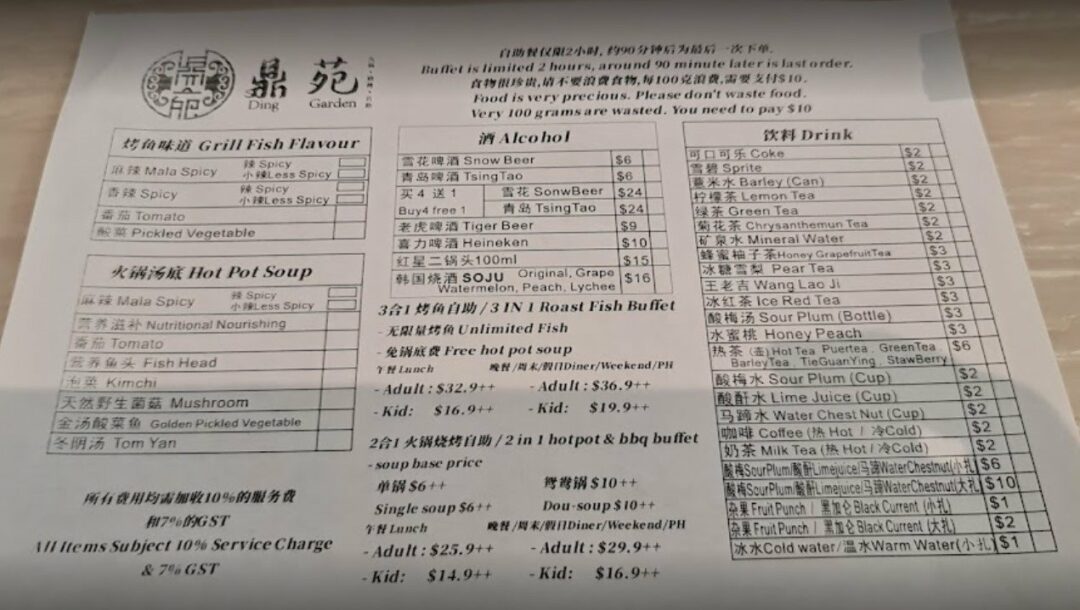 鼎 苑
Ding Garden
自助餐仅限2小时, 约90分钟后为最后一次下单.
Buffet is limited 2 hours, around 90 minute later is last order.
食物很珍贵,请不要浪费食物,每100克浪费,需要支付$10.
Food is very precious. Please don't waste food.
Very 100 grams are wasted. You need to pay $10
烤鱼味道 Grill Fish Flavour
麻辣 Mala Spicy 辣 Spicy
小辣Less Spicy
香辣 Spicy 辣 Spicy
小辣Less Spicy
番茄 Tomato
酸菜 Pickled Vegetable
火锅汤底 Hot Pot Soup
麻辣 Mala Spicy 辣 Spicy
小辣Less Spicy
营养滋补 Nutritional Nourishing
番茄 Tomato
营养鱼头 Fish Head
泡菜 Kimchi
天然野生菌菇 Mushroom
金汤酸菜鱼 Golden Pickled Vegetable
冬阴汤 Tom Yan
所有费用均需加收10%的服务费
和7%的GST
All Items Subject 10% Service Charge
& 7% GST
酒 Alcohol
雪花啤酒 Snow Beer $6
青岛啤酒 TsingTao $6
买 4 送 1 雪花 SonwBeer $24
Buy4 free 1 青岛 TsingTao $24
老虎啤酒 Tiger Beer $9
喜力啤酒 Heineken $10
红星二锅头100ml $15
韩国烧酒 SOJU Original, Grape $16
Watermelon, Peach, Lychee
3合1 烤鱼自助 / 3 IN 1 Roast Fish Buffet
- 无限量烤鱼 Unlimited Fish
- 免锅底费 Free hot pot soup
午餐 Lunch 晚餐/周末/假日Diner/Weekend/PH
- Adult : $32.9++ - Adult : $36.9++
- Kid: $16.9++ - Kid: $19.9++
2合1 火锅烧烤自助 / 2 in 1 hotpot & bbq buffet
- soup base price
单锅 $6++ 鸳鸯锅 $10++
Single soup $6++ Dou-soup $10++
午餐 Lunch 晚餐/周末/假日Diner/Weekend/PH
- Adult : $25.9++ - Adult : $29.9++
- Kid: $14.9++ - Kid: $16.9++
饮料 Drink
可口可乐 Coke $2
雪碧 Sprite $2
薏米水 Barley (Can) $2
柠檬茶 Lemon Tea $2
绿茶 Green Tea $2
菊花茶 Chrysanthemun Tea $2
矿泉水 Mineral Water $2
蜂蜜柚子茶Honey GrapefruitTea $3
冰糖雪梨 Pear Tea $3
王老吉 Wang Lao Ji $3
冰红茶 Ice Red Tea $3
酸梅汤 Sour Plum (Bottle) $3
水蜜桃 Honey Peach $3
热茶 (壶) Hot Tea Puertea , GreenTea , $6
BarleyTea , TieGuanYing , StawBerry
酸梅水 Sour Plum (Cup) $2
酸酐水 Lime Juice (Cup) $2
马蹄水 Water Chest Nut (Cup) $2
咖啡 Coffee (热 Hot / 冷Cold) $2
奶茶 Milk Tea (热 Hot / 冷Cold) $2
酸梅SourPlum/酸酐Limejuice/马蹄WaterChestnut(小扎) $6
酸梅SourPlum/酸酐Limejuice/马蹄WaterChestnut(大扎) $10
杂果 Fruit Punch / 黑加仑 Black Current (小扎) $1
杂果 Fruit Punch / 黑加仑 Black Current (大扎) $2
冰水Cold water/温水Warm Water(小扎) $1